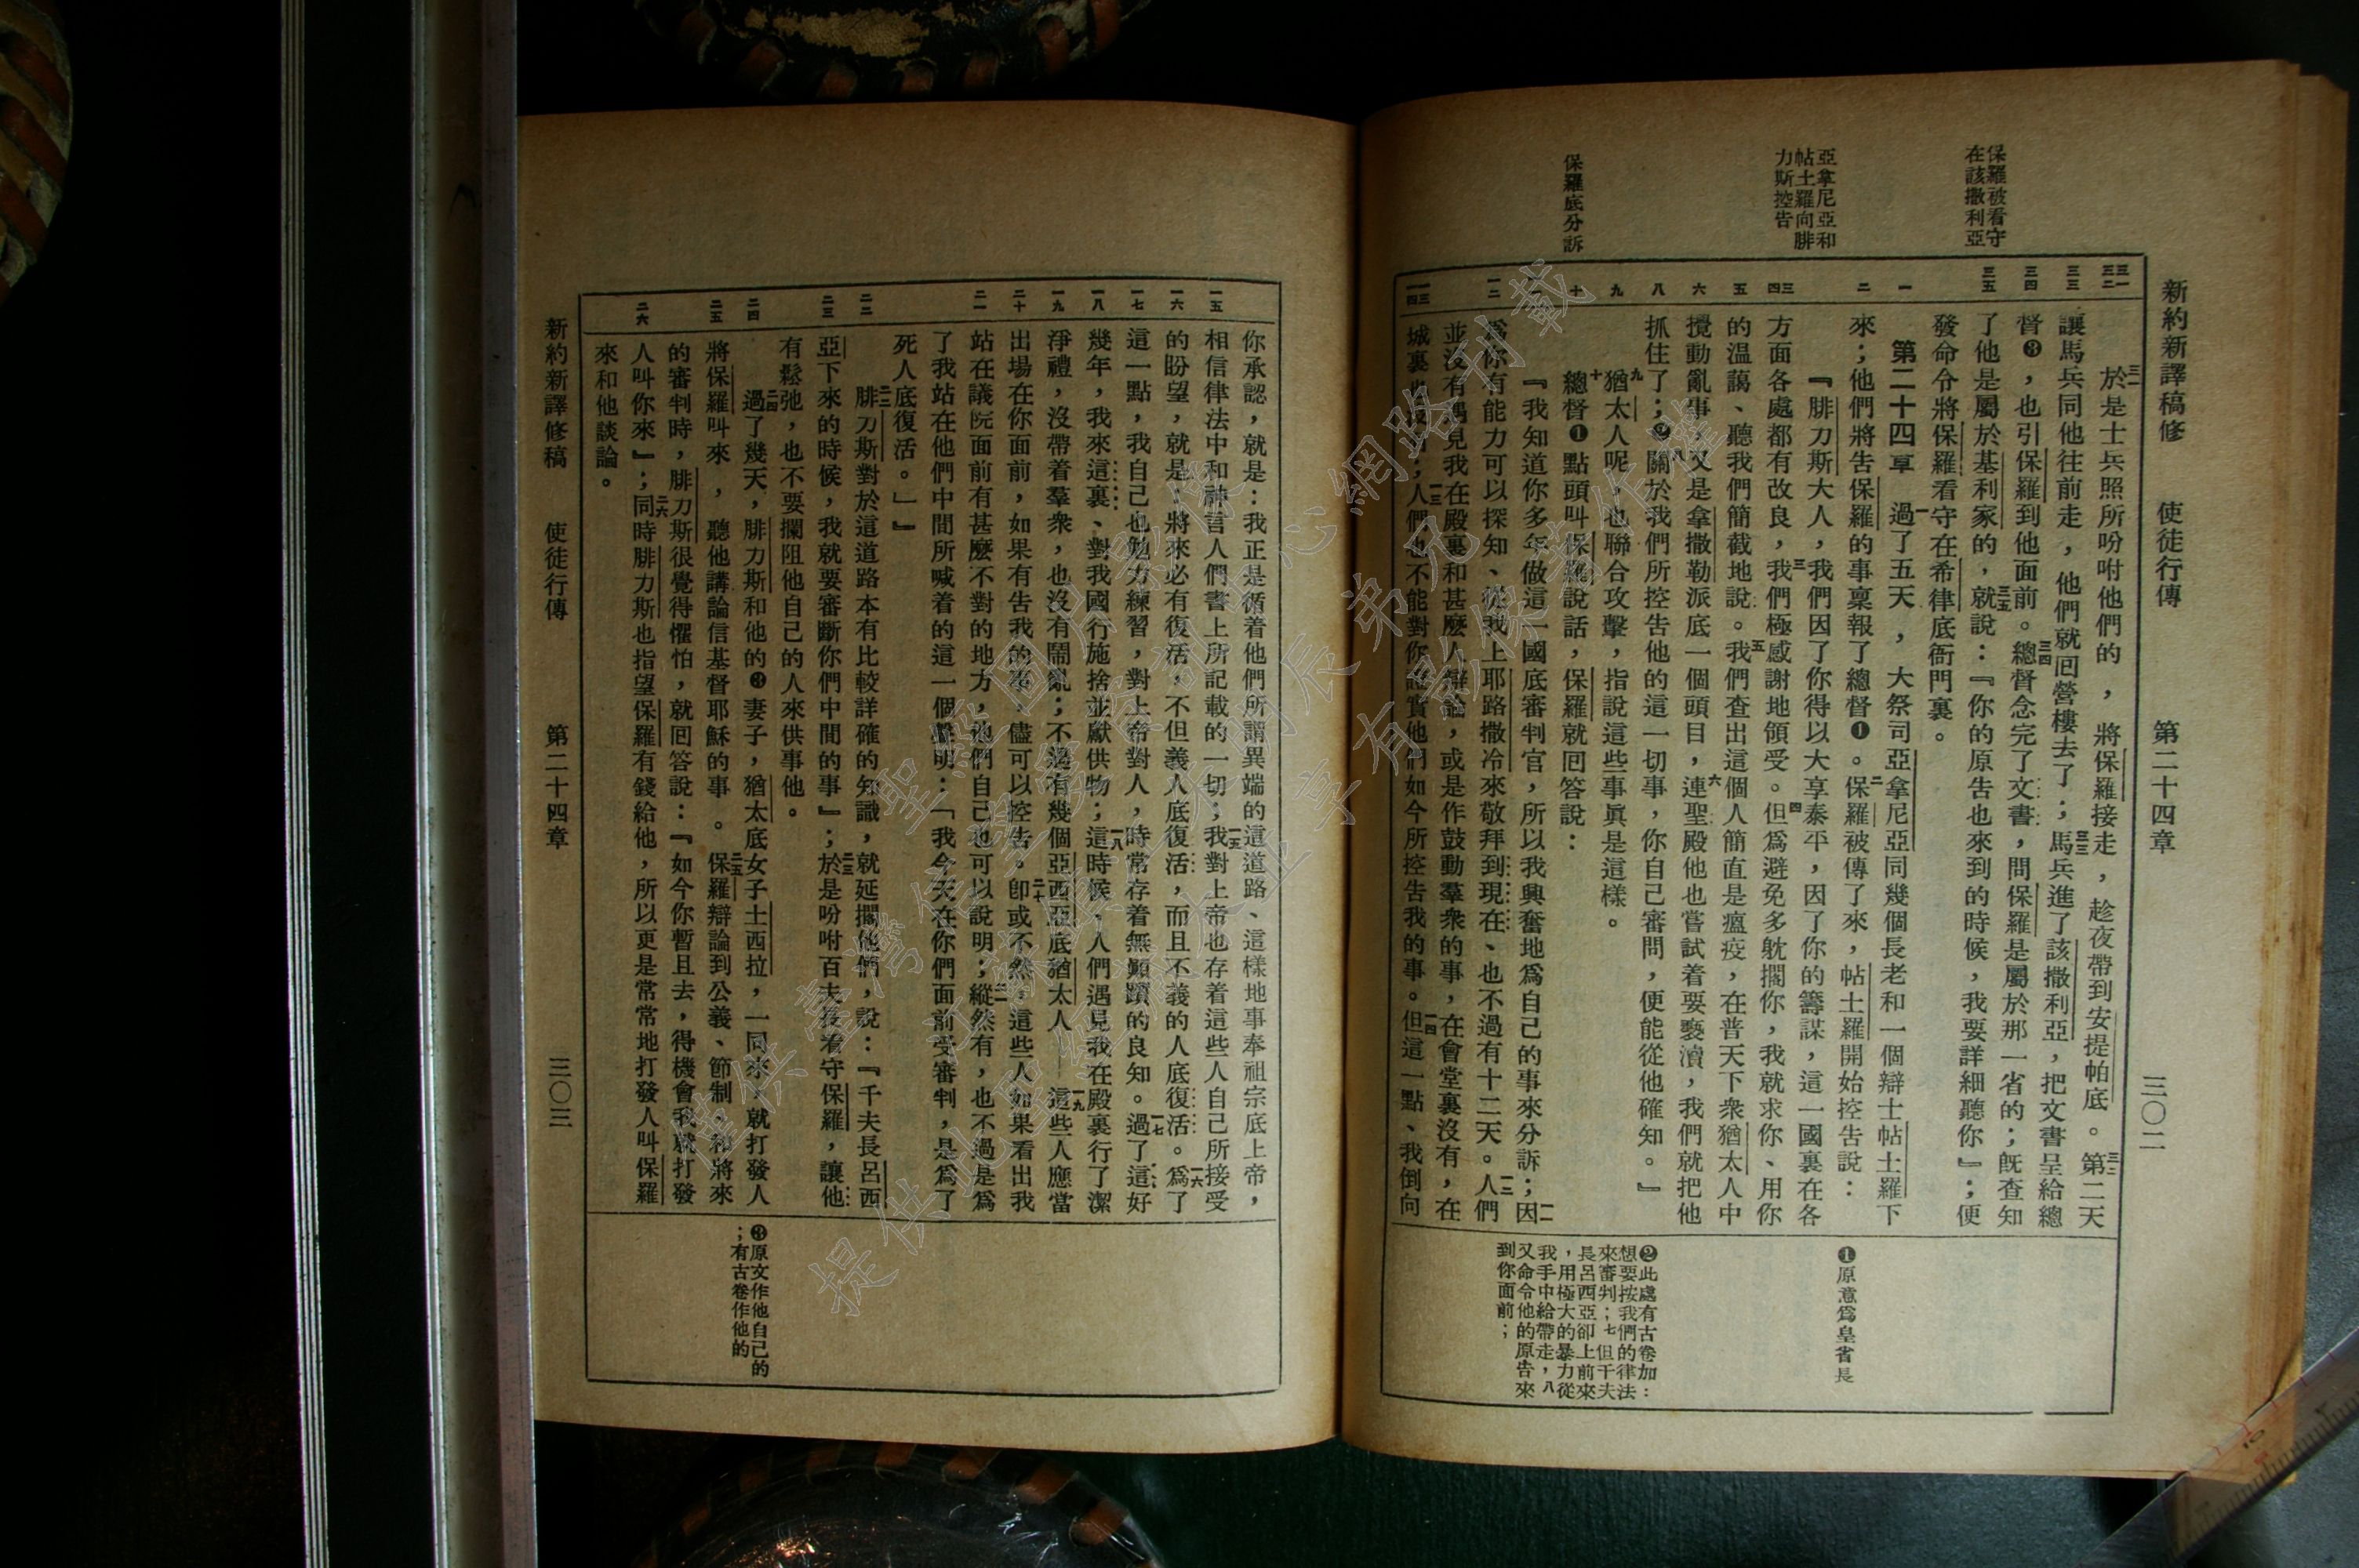 新約新譯修稿　使徒行傳　第二十四章　三〇二
保羅被看守
在該撒利亞
亞拿尼亞和
帖土羅向腓
力斯控告
保羅底分訴
三一
三二
三三
三四
三五
一
二
三
四
五
六
八
九
十
一二
一三
一四
三一於是士兵照所吩咐他們的，將保羅接走，趁夜帶到安提帕底。三二第二天
讓馬兵同他往前走，他們就回營樓去了；三三馬兵進了該撒利亞，把文書呈給總
督❸，也引保羅到他面前。三四總督念完了文書，問保羅是屬於那一省的；旣查知
了他是屬於基利家的，三五就說：『你的原告也來到的時候，我要詳細聽你』；便
發命令將保羅看守在希律底衙門裏。
第二十四章　一過了五天，大祭司亞拿尼亞同幾個長老和一個辯士帖土羅下
來；他們將告保羅的事稟報了總督❶。二保羅被傳了來，帖土羅開始控告說：
『腓力斯大人，我們因了你得以大享泰平，因了你的籌謀，這一國裏在各
方面各處都有改良，三我們極感謝地領受。四但爲避免多躭擱你，我就求你、用你
的溫藹、聽我們簡截地說。五我們查出這個人簡直是瘟疫，在普天下衆猶太人中
攪動亂事，又是拿撒勒派底一個頭目，六連聖殿他也嘗試着要褻瀆，我們就把他
抓住了；❷八關於我們所控告他的這一切事，你自己審問，便能從他確知。』
九猶太人呢，也聯合攻擊，指說這些事眞是這樣。
十總督❶點頭叫保羅說話，保羅就回答說：
『我知道你多年做這一國底審判官，所以我興奮地爲自己的事來分訴；一一因
爲你有能力可以探知、從我上耶路撒冷來敬拜到現在、也不過有十二天。一二人們
並沒有遇見我在殿裏和甚麼人辯論，或是作鼓動羣衆的事，在會堂裏沒有，在
城裏也沒；一三人們也不能對你證實他們如今所控告我的事。一四但這一點、我倒向
❶原意爲皇省長
❷此處有古卷加：
想要按我們的律法
來審判；七但千夫
長呂西亞卻上前來
，用極大的暴力從
我手中給帶走，八
又命令他的原告來
到你面前；
一五
一六
一七
一八
一九
二十
二一
二二
二三
二四
二五
二六
你承認，就是：我正是循着他們所謂異端的這道路、這樣地事奉祖宗底上帝，
相信律法中和神言人們書上所記載的一切；一五我對上帝也存着這些人自己所接受
的盼望，就是：將來必有復活，不但義人底復活，而且不義的人底復活。一六爲了
這一點，我自己也勉力練習，對上帝對人，時常存着無顚躓的良知。一七過了這好
幾年，我來這裏、對我國行施捨並獻供物；一八這時候，人們遇見我在殿裏行了潔
淨禮，沒帶着羣衆，也沒有鬧亂；不過有幾個亞西亞底猶太人——一九這些人應當
出場在你面前，如果有告我的事，儘可以控告。二十卽或不然，這些人如果看出我
站在議院面前有甚麼不對的地方，他們自己也可以說明；二一縱然有，也不過是爲
了我站在他們中間所喊着的這一個聲明：「我今天在你們面前受審判，是爲了
死人底復活。」』
二二腓力斯對於這道路本有比較詳確的知識，就延擱他們，說：『千夫長呂西
亞下來的時候，我就要審斷你們中間的事』；二三於是吩咐百夫長看守保羅，讓他
有鬆弛，也不要攔阻他自己的人來供事他。
二四過了幾天，腓力斯和他的❸妻子，猶太底女子土西拉，一同來，就打發人
將保羅叫來，聽他講論信基督耶穌的事。二五保羅辯論到公義、節制、和將來
的審判時，腓力斯很覺得懼怕，就回答說：『如今你暫且去，得機會我就打發
人叫你來』；二六同時腓力斯也指望保羅有錢給他，所以更是常常地打發人叫保羅
來和他談論。
❸原文作他自己的
；有古卷作他的
新約新譯修稿　使徒行傳　第二十四章　三〇三